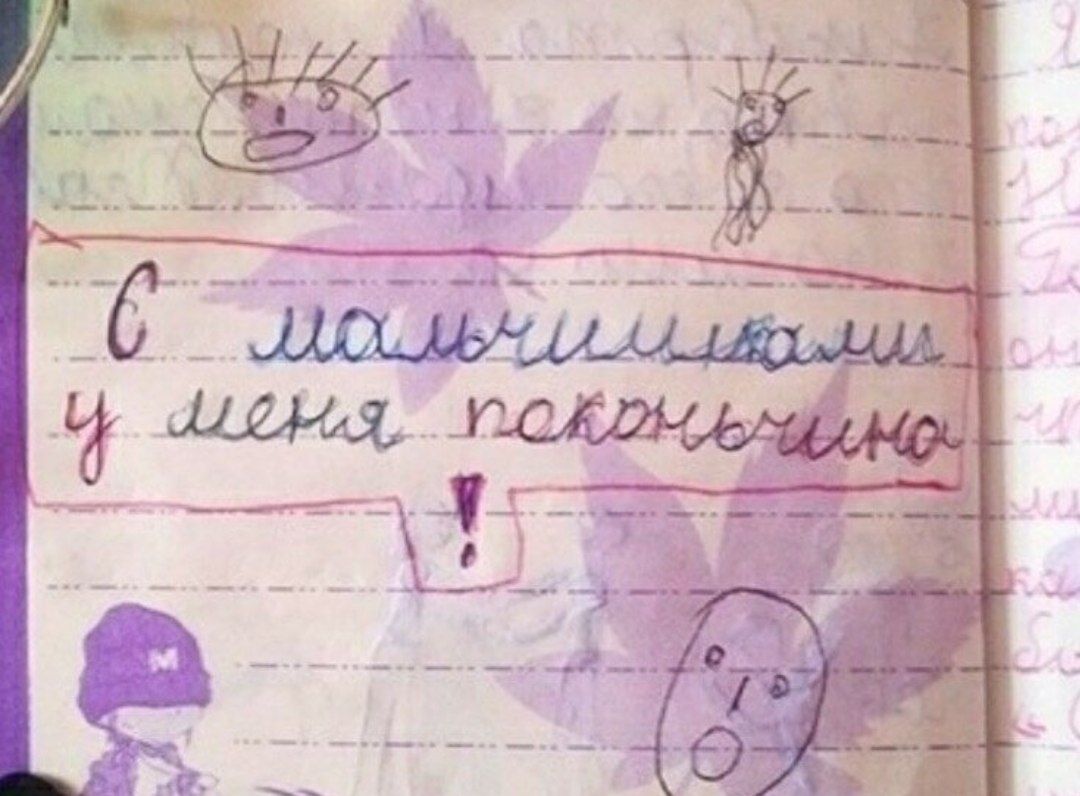 С мальчишками
у меня поконьчина
!
M